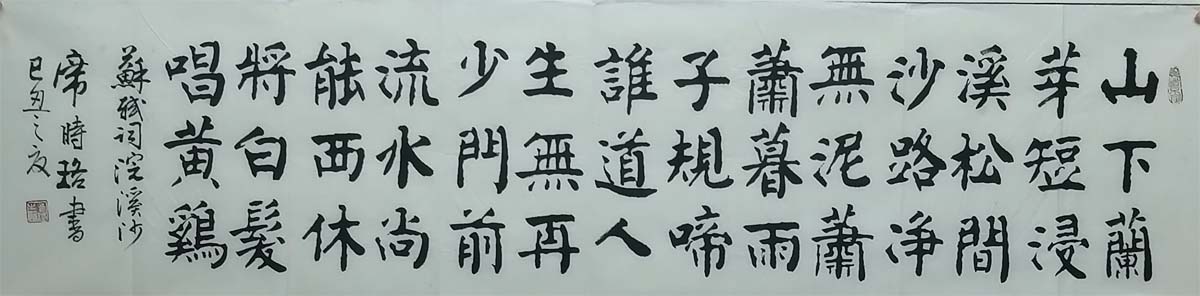 山下蘭
芽短浸
溪松間
沙路淨
無泥蕭
蕭暮雨
子規啼
誰道人
生無再
少門前
流水尚
能西休
將白髮
唱黄鷄
蘇軾詞浣溪沙
席時珞書
己丑之夏